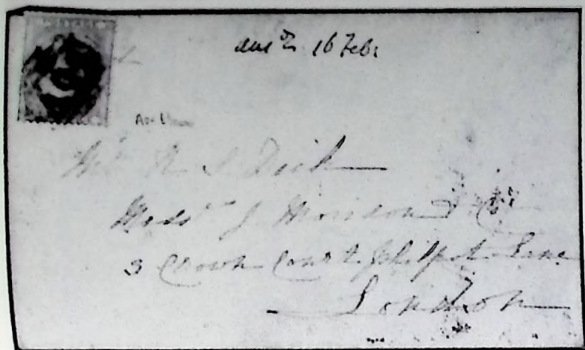 ansd 16 Feb:
Mr R S Dick
Messrs J Morison & Co
3 Crown Court Philpot Lane
London